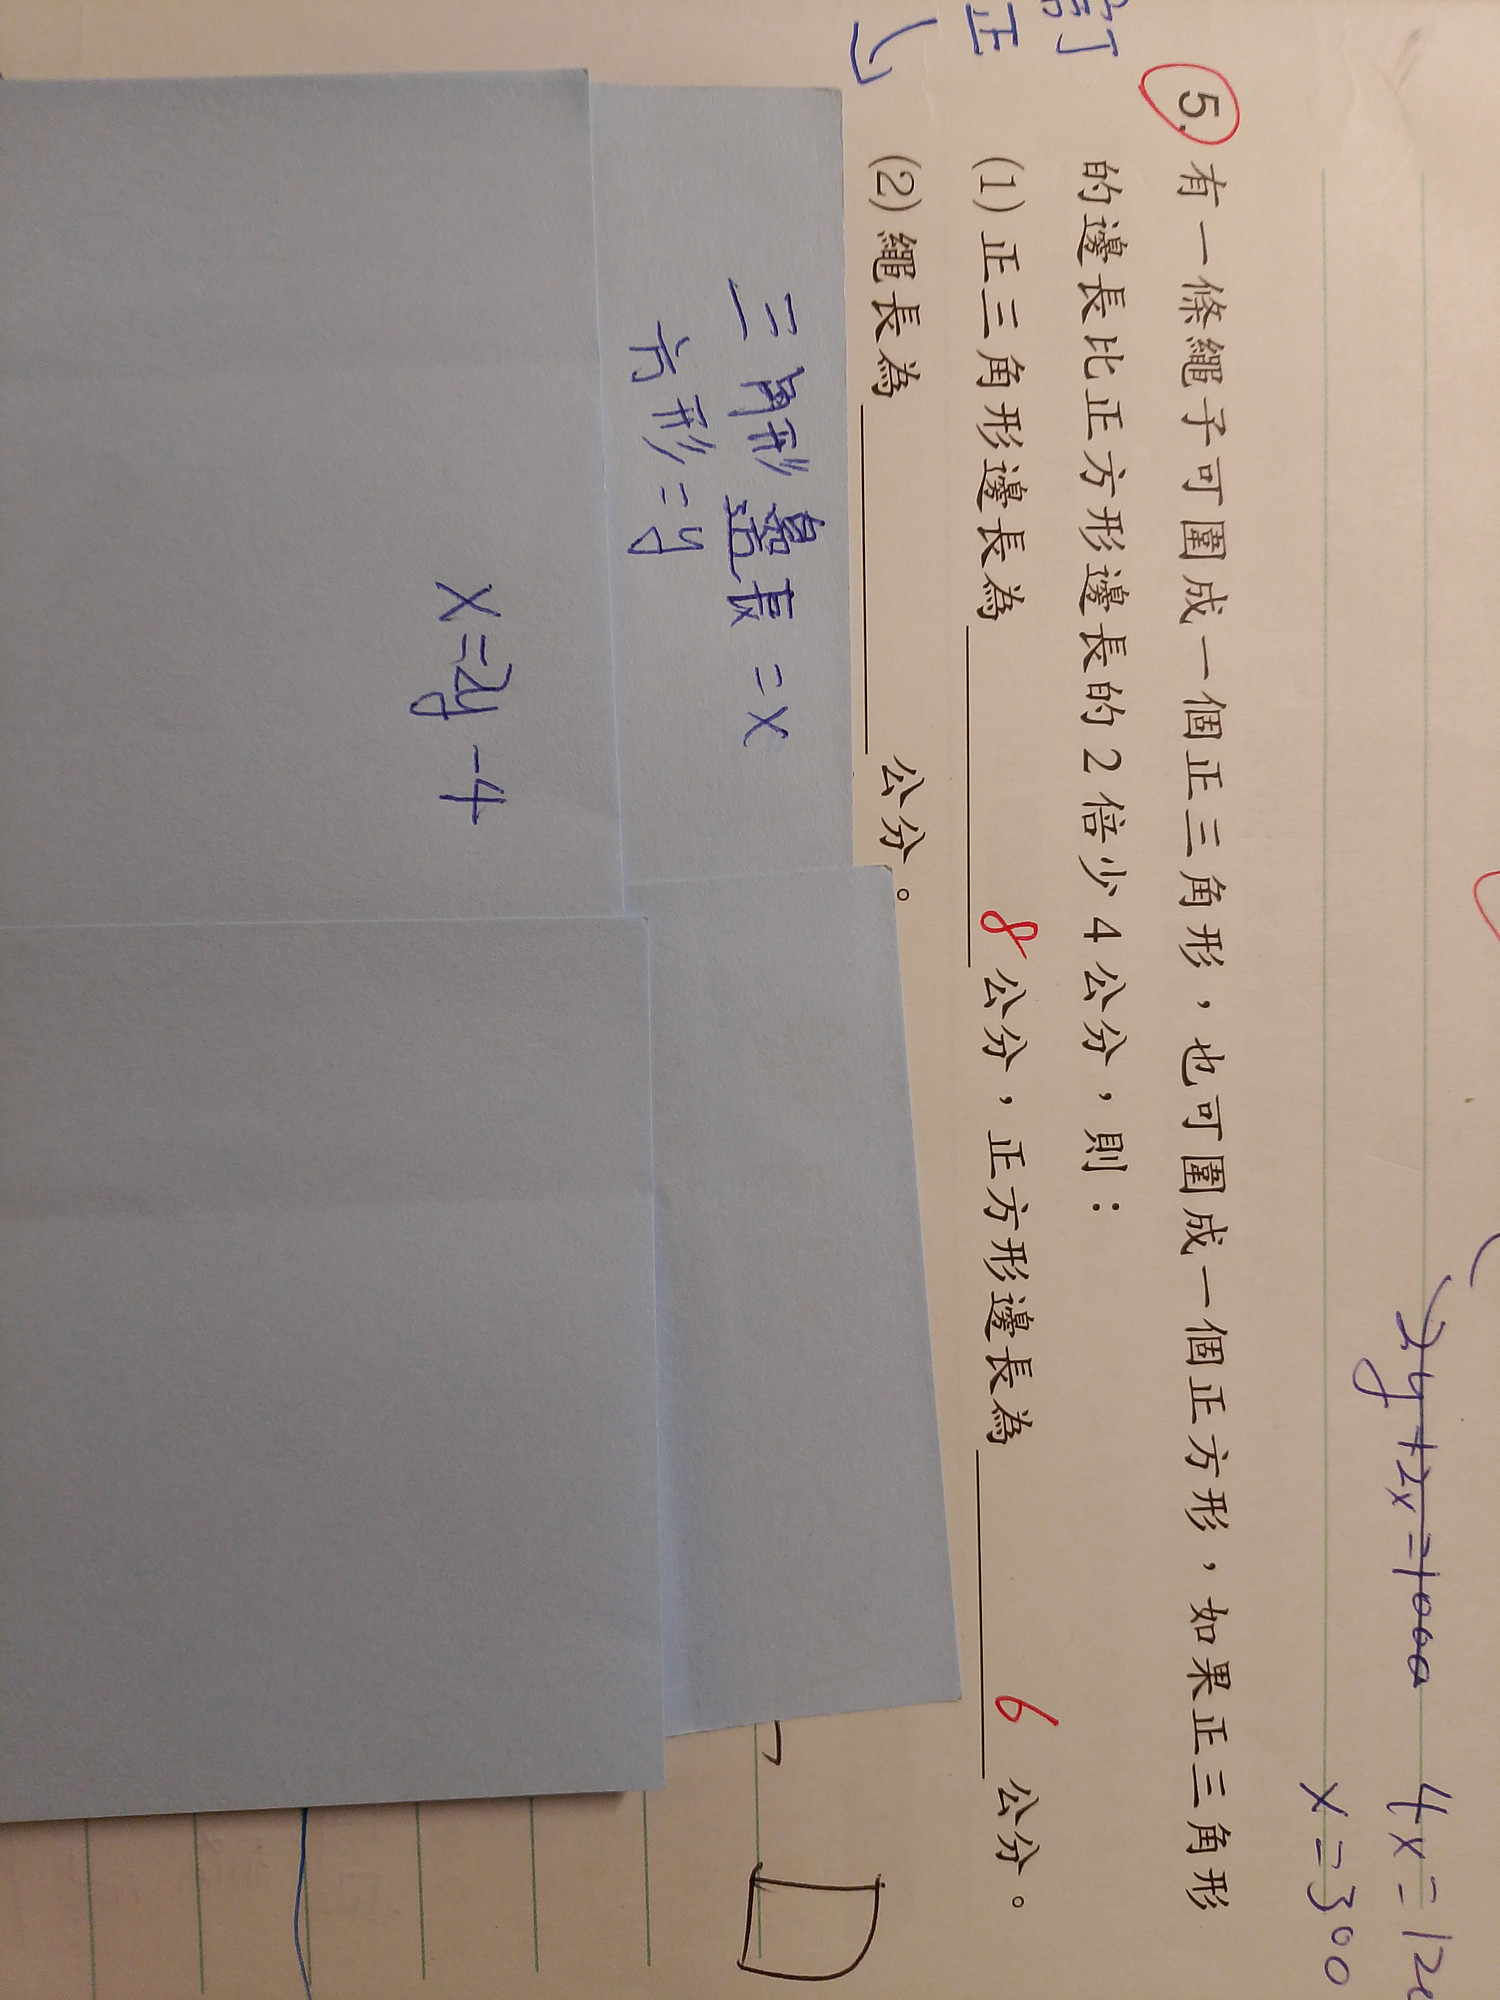 2y+2x=1000 4x=12
x=300
5. 有一條繩子可圍成一個正三角形，也可圍成一個正方形，如果正三角形
的邊長比正方形邊長的2倍少4公分，則：
訂正
(1)正三角形邊長為 8 公分，正方形邊長為 6 公分。
(2)繩長為 公分。
三角形邊長=x
方形=y
x=2y-4